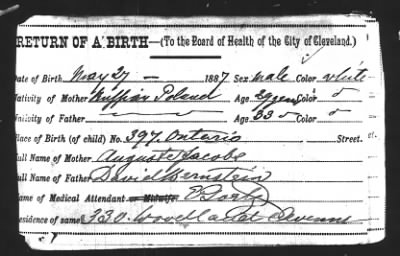 RETURN OF A BIRTH—(To the Board of Health of the City of Cleveland.)
Date of Birth May 27 — 1887 Sex male Color white
Nativity of Mother Russian Poland Age 29 Color
Nativity of Father Age 33 Color
Place of Birth (of child) No. 397 Ontario Street.
Full Name of Mother Auguste Jacobs
Full Name of Father David Bernstein
Name of Medical Attendant or Midwife
Residence of same 330. Woodland Avenue